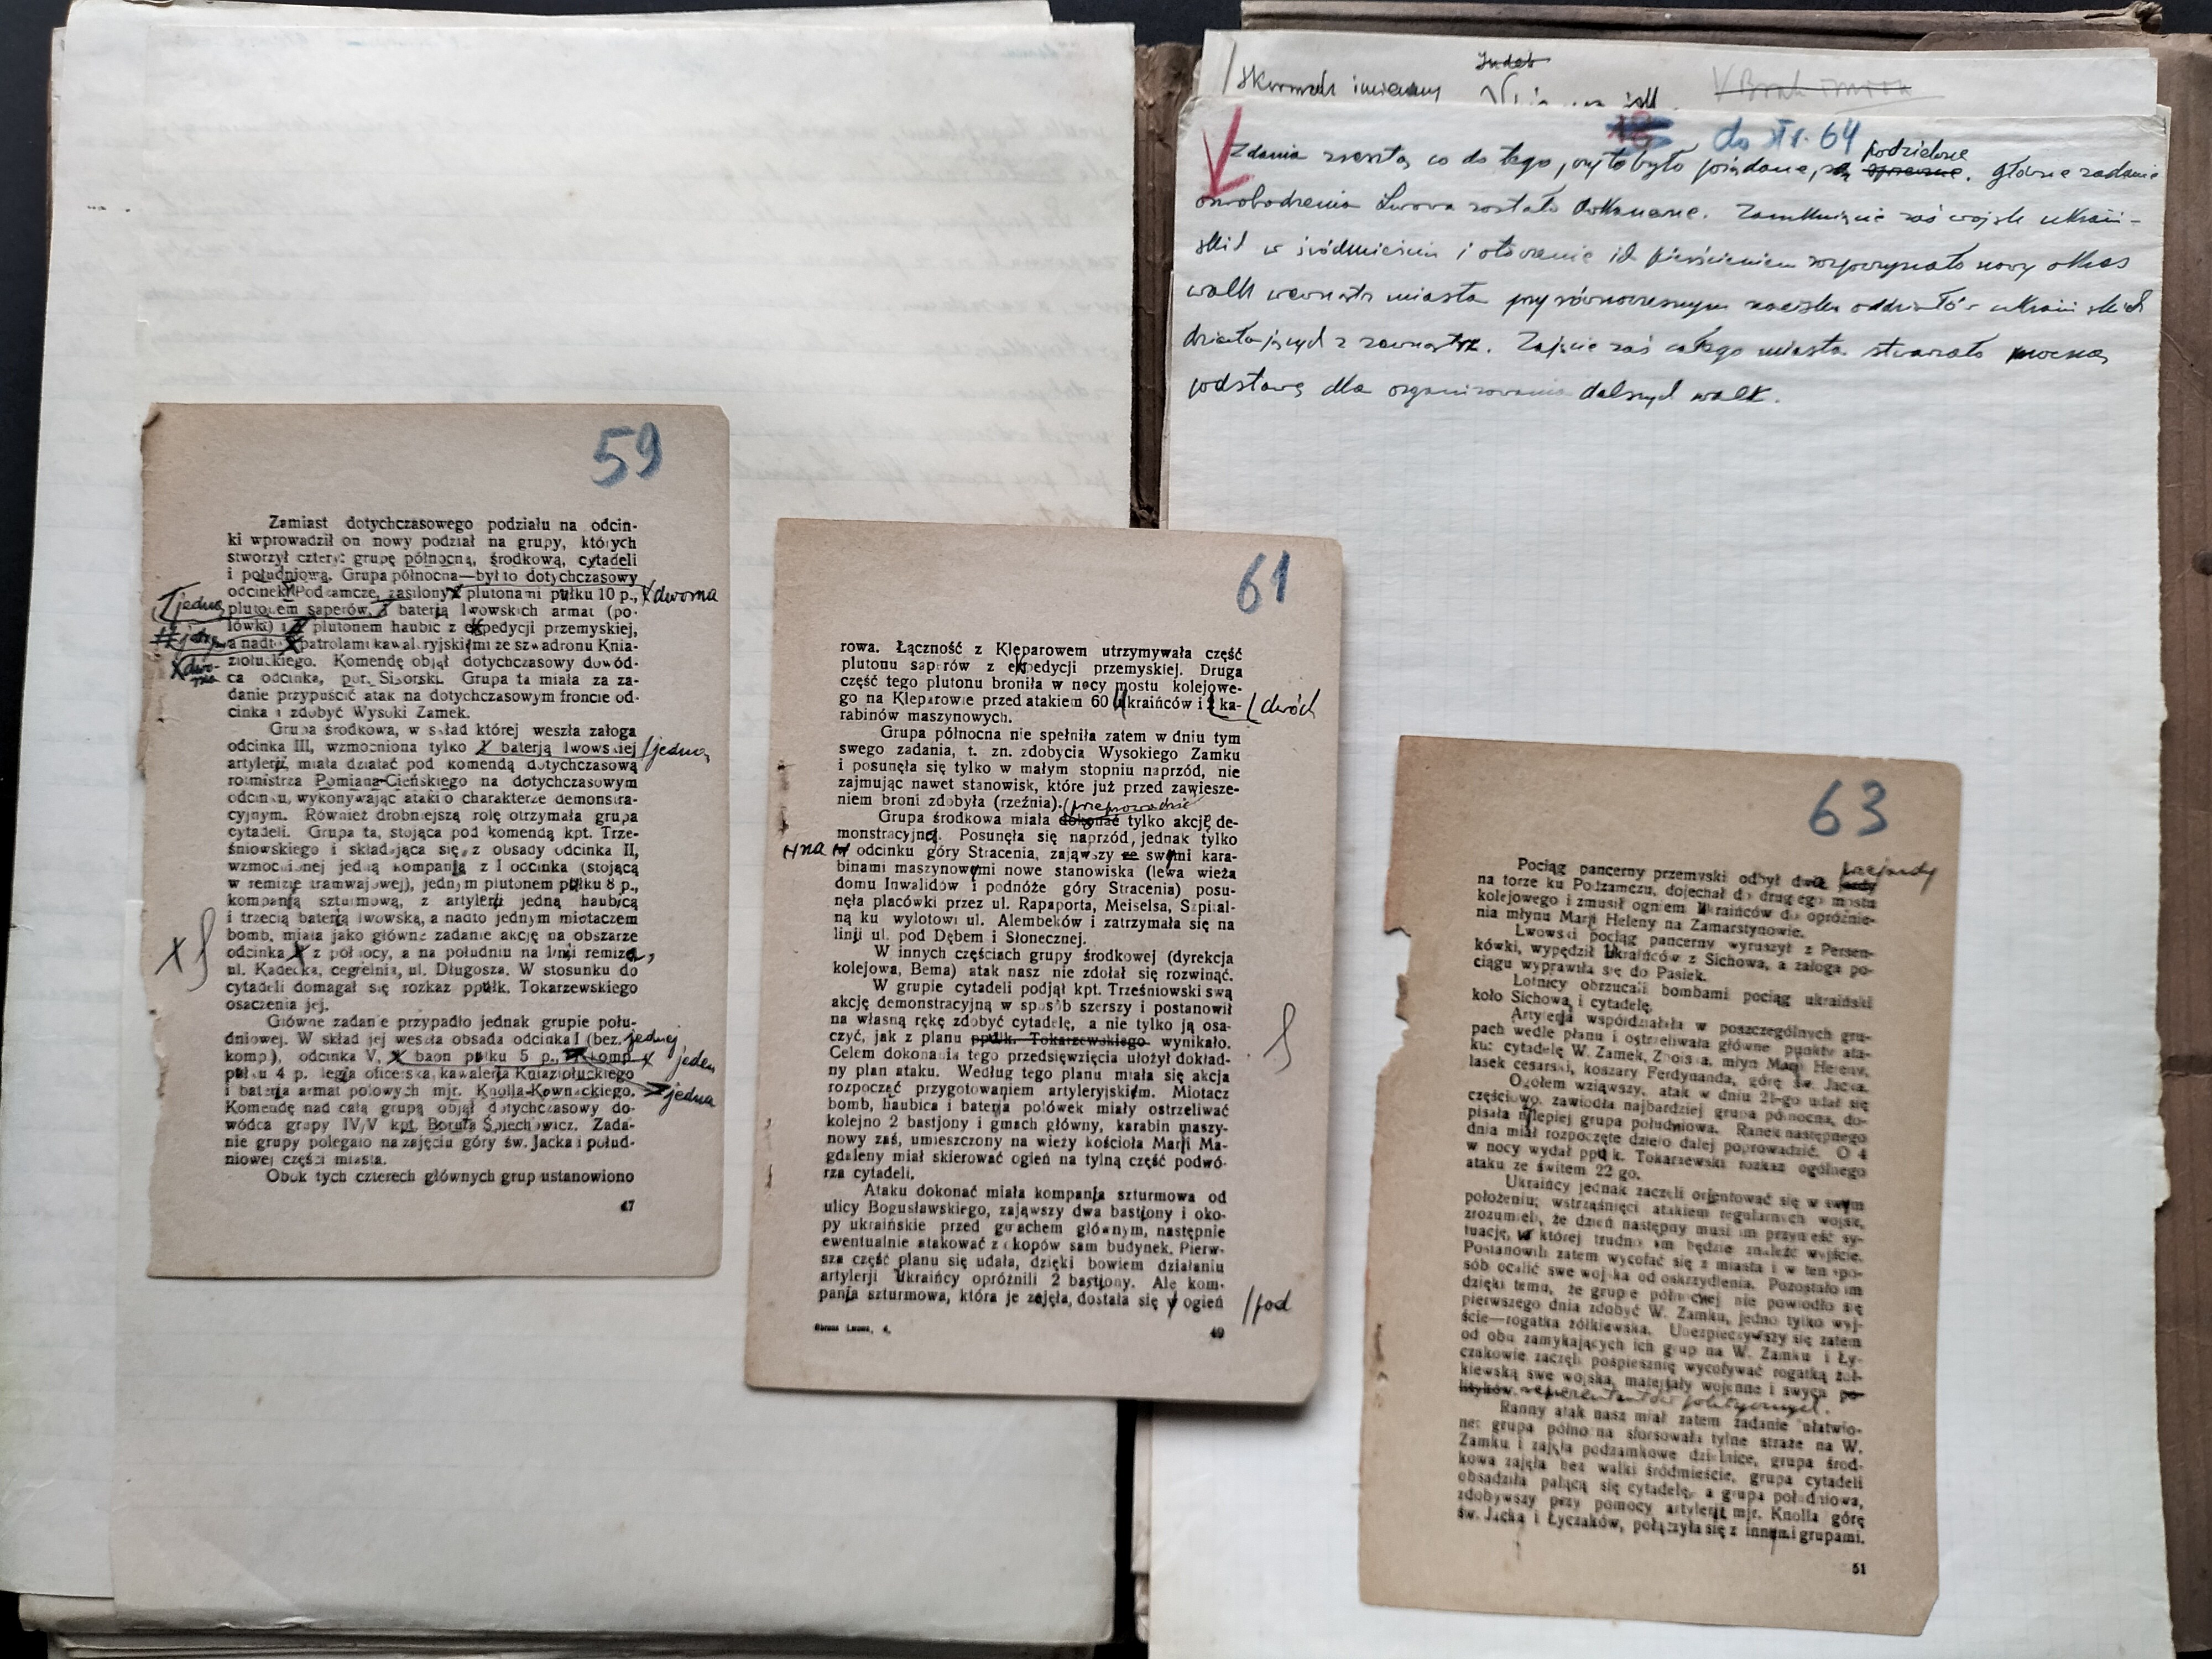 59
Zamiast dotychczasowego podziału na odcin-
ki wprowadził on nowy podział na grupy, których
stworzył cztery: grupę północną, środkową, cytadeli
i południową. Grupa północna—był to dotychczasowy
odcinek Podzamcze, zasilony plutonami pułku 10 p., dwoma
jedną plutonem saperów, baterją lwowskich armat (po-
lówki) i plutonem haubic z ekspedycji przemyskiej,
a nadto patrolami kawaleryjskiemi ze szwadronu Knia-
ziołuckiego. Komendę objął dotychczasowy dowód-
ca odcinka, por. Sikorski. Grupa ta miała za za-
danie przypuścić atak na dotychczasowym froncie od-
cinka i zdobyć Wysoki Zamek.
Grupa środkowa, w skład której weszła załoga
odcinka III, wzmocniona tylko baterją lwowskiej jedną
artylerji, miała działać pod komendą dotychczasową
rotmistrza Pomiana-Cieńskiego na dotychczasowym
odcinku, wykonywając ataki o charakterze demonstra-
cyjnym. Również drobniejszą rolę otrzymała grupa
cytadeli. Grupa ta, stojąca pod komendą kpt. Trze-
śniowskiego i składająca się z obsady odcinka II,
wzmocnionej jedną kompanją z I odcinka (stojącą
w remizie tramwajowej), jednym plutonem pułku 8 p.,
kompanją szturmową, z artylerji jedną haubicą
i trzecią baterją lwowską, a nadto jednym miotaczem
bomb, miała jako główne zadanie akcję na obszarze
odcinka z północy, a na południu na linji remiza,
ul. Kadecka, cegielnia, ul. Długosza. W stosunku do
cytadeli domagał się rozkaz ppułk. Tokarzewskiego
osaczenia jej.
Główne zadanie przypadło jednak grupie połu-
dniowej. W skład jej weszła obsada odcinka I (bez jednej
komp.), odcinka V, baon pułku 5 p., komp. jeden
pułku 4 p. legja oficerska, kawalerja Kniaziołuckiego
i baterja armat polowych mjr. Knolla-Kownackiego. jedna
Komendę nad całą grupą objął dotychczasowy do-
wódca grupy IV/V kpt. Boruta Spiechowicz. Zada-
nie grupy polegało na zajęciu góry św. Jacka i połud-
niowej części miasta.
Obok tych czterech głównych grup ustanowiono
47
61
rowa. Łączność z Kleparowem utrzymywała część
plutonu saperów z ekspedycji przemyskiej. Druga
część tego plutonu broniła w nocy mostu kolejowe-
go na Kleparowie przed atakiem 60 Ukraińców i 2 ka- dwóch
rabinów maszynowych.
Grupa północna nie spełniła zatem w dniu tym
swego zadania, t. zn. zdobycia Wysokiego Zamku
i posunęła się tylko w małym stopniu naprzód, nie
zajmując nawet stanowisk, które już przed zawiesze-
niem broni zdobyła (rzeźnia). przeprowadzić
Grupa środkowa miała dokonać tylko akcję de-
monstracyjną. Posunęła się naprzód, jednak tylko
na odcinku góry Stracenia, zająwszy ze swymi kara-
binami maszynowymi nowe stanowiska (lewa wieża
domu Inwalidów i podnóże góry Stracenia) posu-
nęła placówki przez ul. Rapaporta, Meiselsa, Szpital-
ną ku wylotowi ul. Alembeków i zatrzymała się na
linji ul. pod Dębem i Słonecznej.
W innych częściach grupy środkowej (dyrekcja
kolejowa, Bema) atak nasz nie zdołał się rozwinąć.
W grupie cytadeli podjął kpt. Trześniowski swą
akcję demonstracyjną w sposób szerszy i postanowił
na własną rękę zdobyć cytadelę, a nie tylko ją osa-
czyć, jak z planu ppułk. Tokarzewskiego wynikało.
Celem dokonania tego przedsięwzięcia ułożył dokład-
ny plan ataku. Według tego planu miała się akcja
rozpocząć przygotowaniem artyleryjskiem. Miotacz
bomb, haubica i baterja polówek miały ostrzeliwać
kolejno 2 bastjony i gmach główny, karabin maszy-
nowy zaś, umieszczony na wieży kościoła Marji Ma-
gdaleny miał skierować ogień na tylną część podwó-
rza cytadeli.
Ataku dokonać miała kompanja szturmowa od
ulicy Bogusławskiego, zająwszy dwa bastjony i oko-
py ukraińskie przed gmachem głównym, następnie
ewentualnie atakować z okopów sam budynek. Pierw-
sza część planu się udała, dzięki bowiem działaniu
artylerji Ukraińcy opróżnili 2 bastjony. Ale kom-
panja szturmowa, która je zajęła, dostała się w ogień pod
Obrona Lwowa, 4.
49
Skorowidz imienny Indeks
do str. 64
Zdania zresztą co do tego, czy to było pożądane, są podzielone. Główne zadanie
oswobodzenia Lwowa zostało dokonane. Zamknięcie zaś wojsk ukraiń-
skich w śródmieściu i otoczenie ich pierścieniem rozpoczynało nowy okres
walk wewnątrz miasta przy równoczesnym nacisku oddziałów ukraińskich
działających z zewnątrz. Zajęcie zaś całego miasta stwarzało mocną
podstawę dla organizowania dalszych walk.
63
Pociąg pancerny przemyski odbył dwa jazdy
na torze ku Podzamczu, dojechał do drugiego mostu
kolejowego i zmusił ogniem Ukraińców do opróżnie-
nia młynu Marji Heleny na Zamarstynowie.
Lwowski pociąg pancerny wyruszył z Persen-
kówki, wypędził Ukraińców z Sichowa, a załoga po-
ciągu wyprawiła się do Pasiek.
Lotnicy obrzucali bombami pociąg ukraiński
koło Sichowa i cytadelę.
Artylerja współdziałała w poszczególnych gru-
pach wedle planu i ostrzeliwała główne punkty ata-
ku: cytadelę W. Zamek, Zboiska, młyn Marji Heleny,
lasek cesarski, koszary Ferdynanda, górę św. Jacka.
Ogółem wziąwszy, atak w dniu 21-go udał się
częściowo, zawiodła najbardziej grupa północna, do-
pisała najlepiej grupa południowa. Ranek następnego
dnia miał rozpoczęte dzieło dalej poprowadzić. O 4
w nocy wydał ppułk. Tokarzewski rozkaz ogólnego
ataku ze świtem 22 go.
Ukraińcy jednak zaczęli orjentować się w swym
położeniu; wstrząśnięci atakiem regularnych wojsk,
zrozumieli, że dzień następny musi im przynieść sy-
tuację, w której trudno im będzie znaleźć wyjście.
Postanowili zatem wycofać się z miasta i w ten spo-
sób ocalić swe wojska od oskrzydlenia. Pozostało im
dzięki temu, że grupie północnej nie powiodło się
pierwszego dnia zdobyć W. Zamku, jedno tylko wyj-
ście—rogatka żółkiewska. Ubezpieczywszy się zatem
od obu zamykających ich grup na W. Zamku i Ły-
czakowie zaczęli pośpiesznie wycofywać rogatką żół-
kiewską swe wojska, materjały wojenne i swych po-
lityków. reprezentantów politycznych.
Ranny atak nasz miał zatem zadanie ułatwio-
ne: grupa północna sforsowała tylne straże na W.
Zamku i zajęła podzamkowe dzielnice, grupa środ-
kowa zajęła bez walki śródmieście, grupa cytadeli
obsadziła palącą się cytadelę, a grupa południowa,
zdobywszy przy pomocy artylerji mjr. Knolla górę
św. Jacka i Łyczaków, połączyła się z innymi grupami.
51